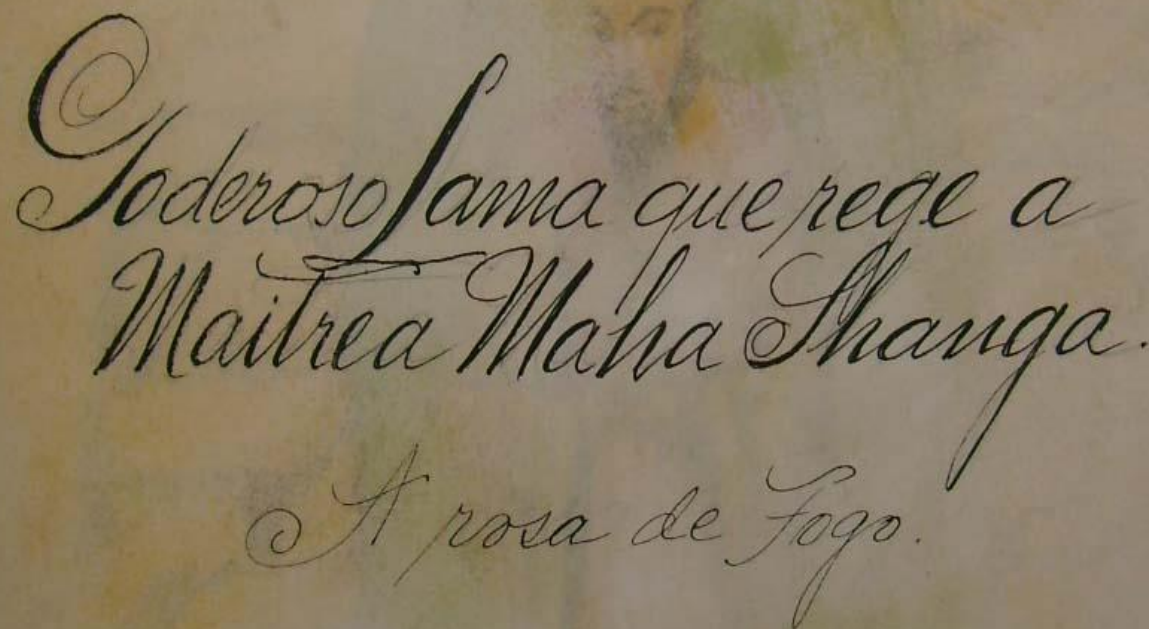 Poderoso Lama que rege a
Maitrea Maha Shanga.
A rosa de Fogo.